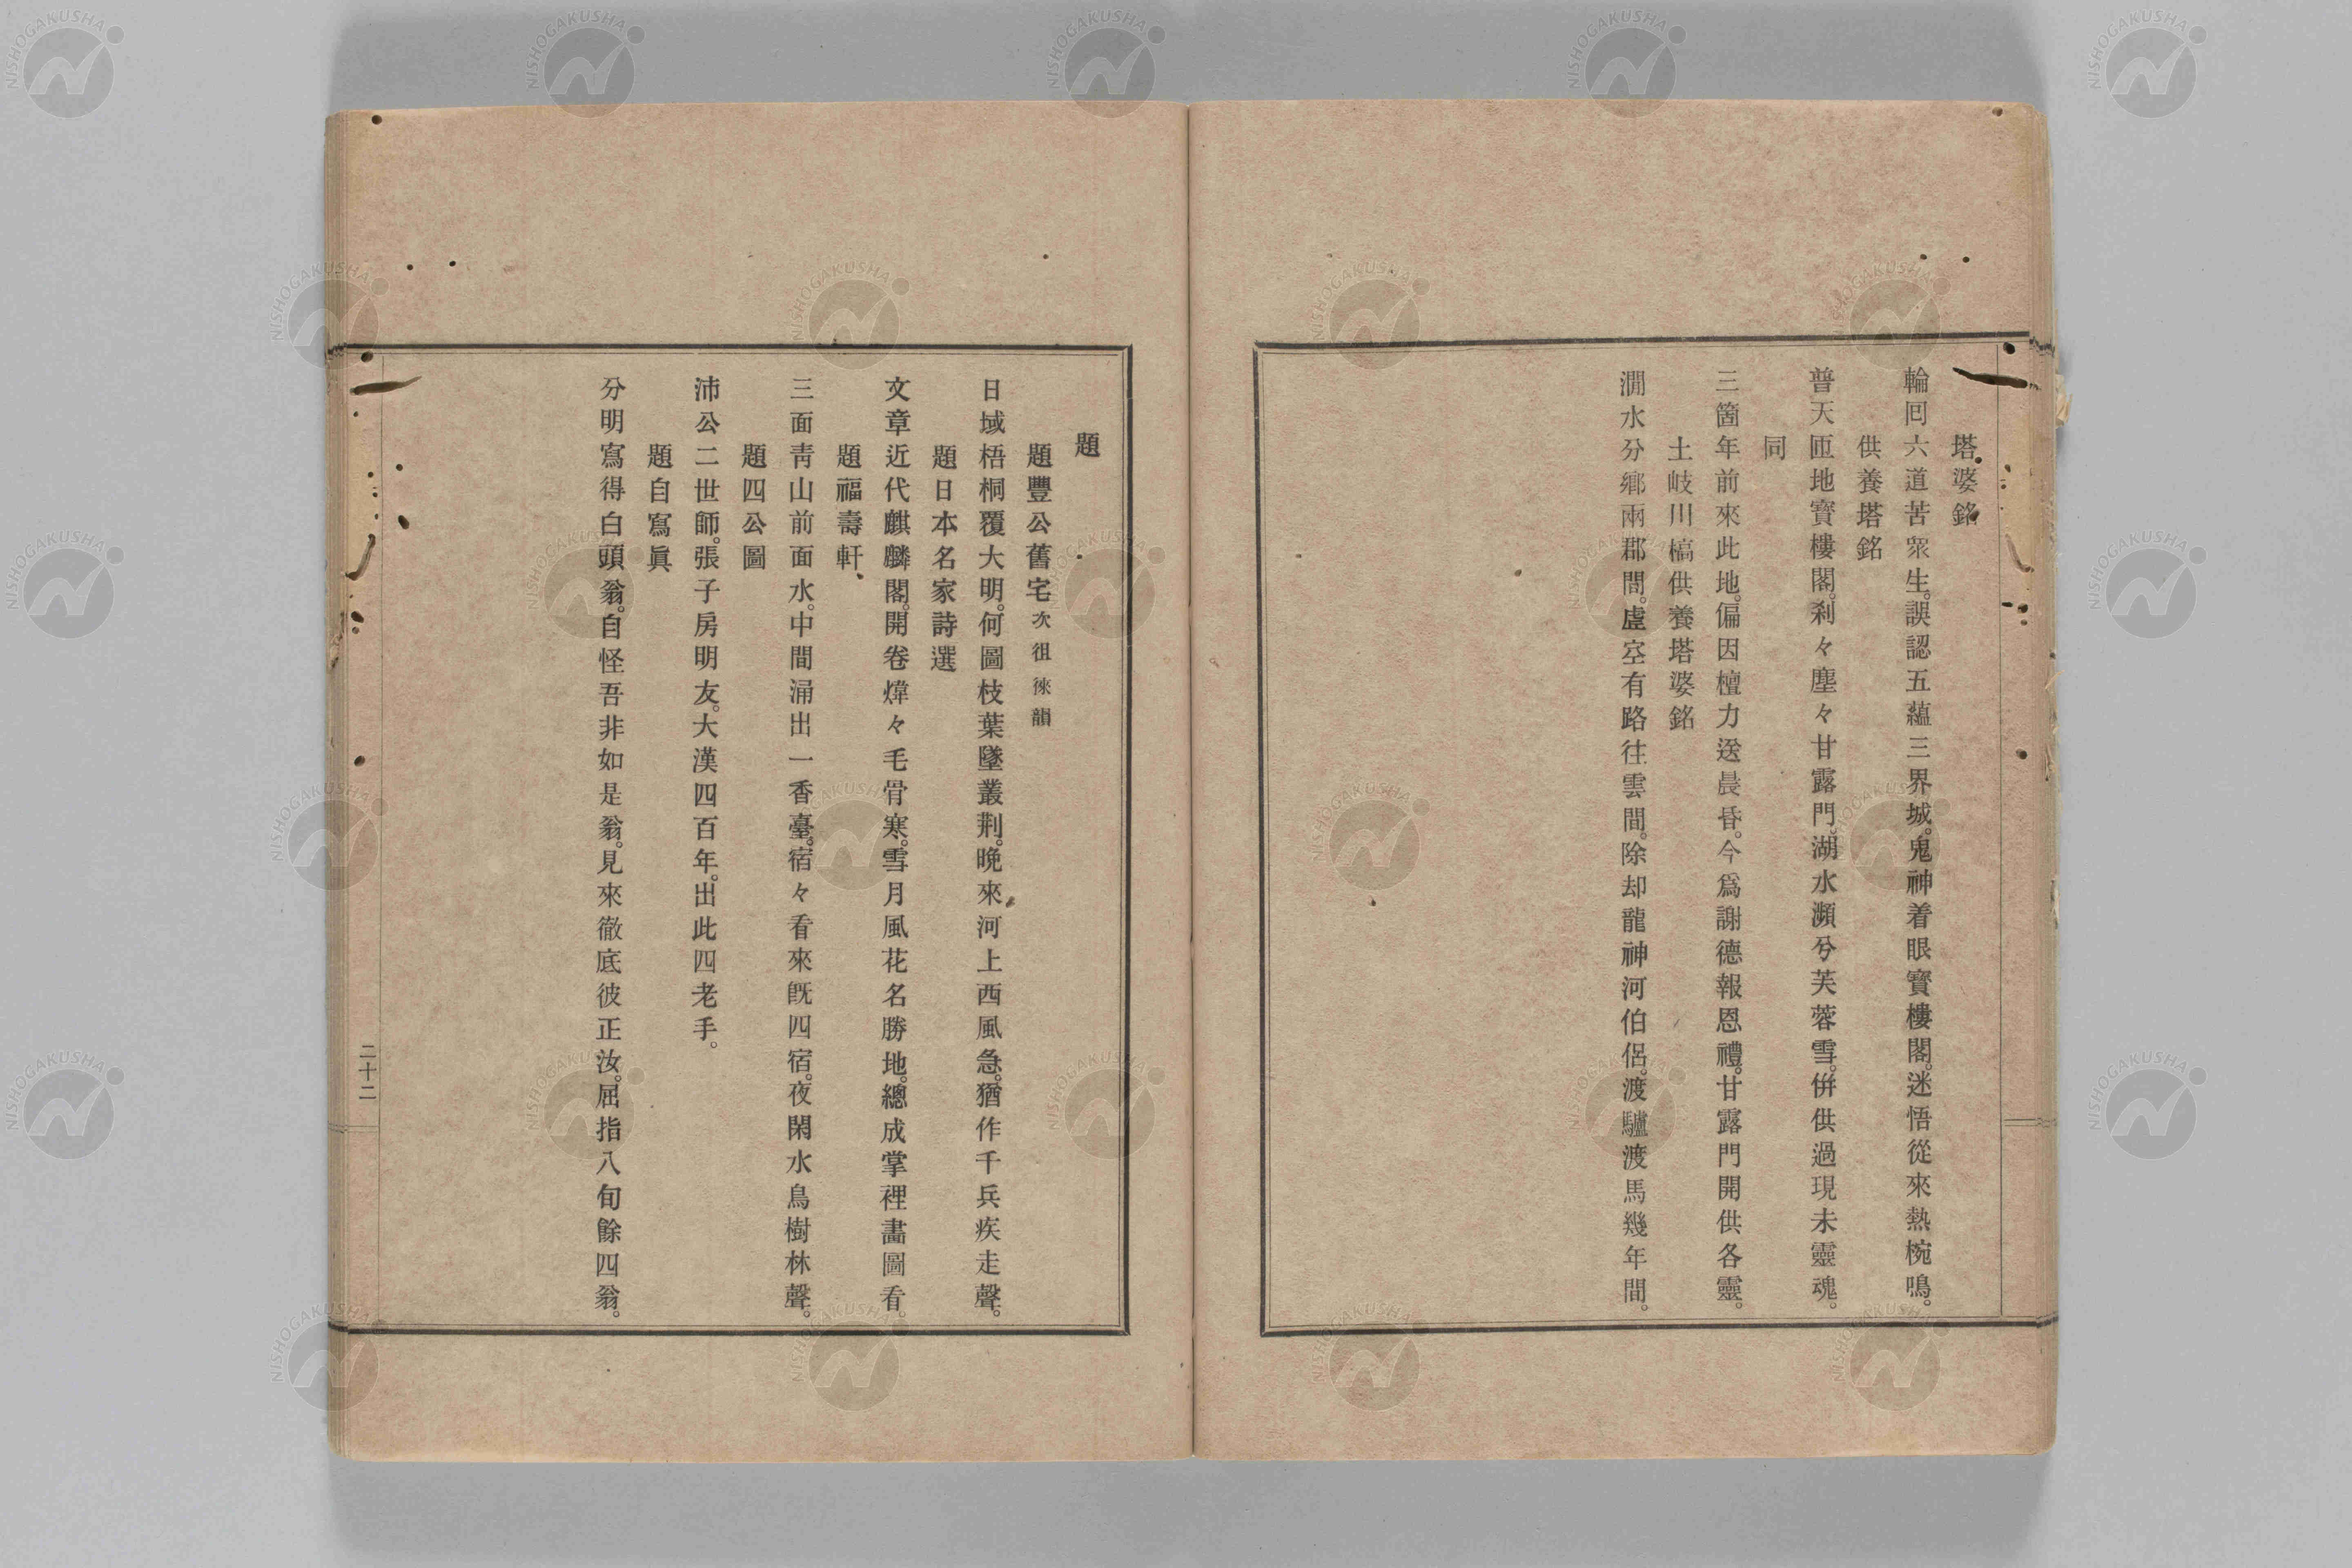 塔婆銘
輪回六道苦衆生。誤認五蘊三界城。鬼神着眼寶樓閣。迷悟從來熱椀鳴。
供養塔銘
普天匝地寶樓閣。刹々塵々甘露門。湖水瀕兮芙蓉雪。倂供過現未靈魂。
同
三箇年前來此地。偏因檀力送晨昏。今爲謝德報恩禮。甘露門開供各靈。
土岐川槁供養塔婆銘
澗水分鄕兩郡間。虛空有路往雲間。除却龍神河伯侶。渡驢渡馬幾年間。
題
題豐公舊宅次徂徠韻
日域梧桐覆大明。何圖枝葉墜叢荆。晩來河上西風急。猶作千兵疾走聲。
題日本名家詩選
文章近代麒麟閣。開卷煒々毛骨寒。雪月風花名勝地。總成掌裡畵圖看。
題福壽軒
三面靑山前面水。中間涌出一香臺。宿々看來旣四宿。夜閑水鳥樹林聲。
題四公圖
沛公二世師。張子房明友。大漢四百年。出此四老手。
題自寫眞
分明寫得白頭翁。自怪吾非如是翁。見來徹底彼正汝。屈指八旬餘四翁。
二十二
NISHOGAKUSHA